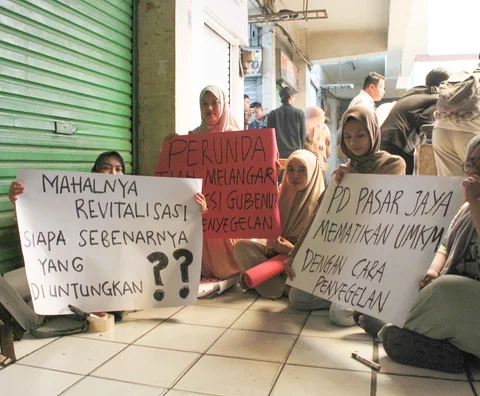 MAHALNYA
REVITALISASI
SIAPA SEBENARNYA
YANG
DIUNTUNGKAN ??
PERUNDA
TELAH MELANGAR
SI GUBENUR
PENYEGELAN
PD PASAR JAYA
MEMATIKAN UMKM
DENGAN CARA
PENYEGELAN